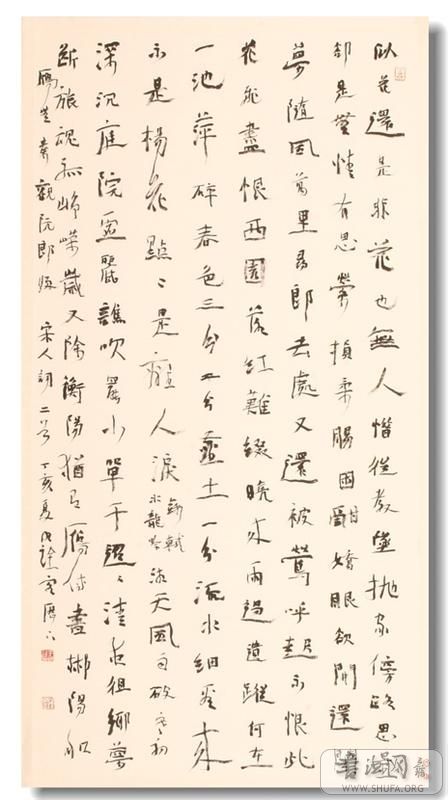 似花還是非花也無人惜從教墜拋家傍路思
却是無情有思縈損柔腸困酣嬌眼欲開還
夢隨風萬里尋郎去處又還被鶯呼起不恨此
花飛盡恨西園落紅難綴曉來雨過遺蹤何在
一池萍碎春色三分二分塵土一分流水細看來
不是楊花點々是離人淚蘇軾水龍吟湘天風雨破寒初
深沉庭院虛麗譙吹罷小單于迢々清夜徂鄉夢
斷旅魂孤崢嶸歲又除衡陽猶有雁傳書郴陽和
雁無秦觀阮郎歸宋人詞二首丁亥夏
書法网
WWW.SHUFA.ORG